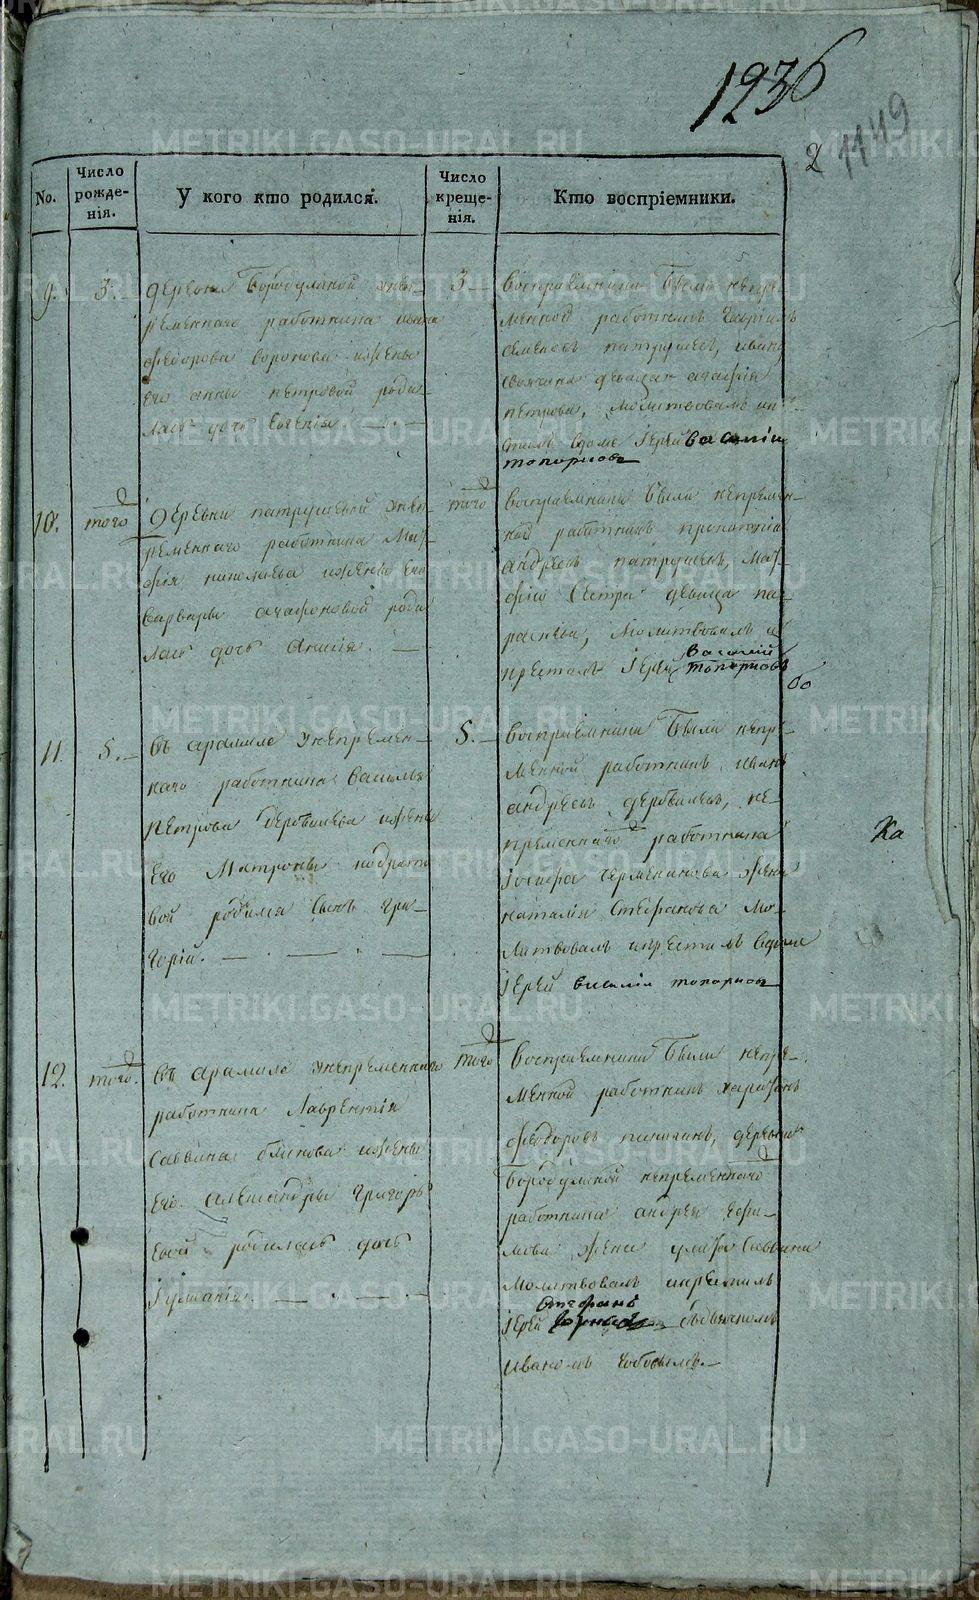 1236
2 1149
No.
Число рожде-нія.
У кого кто родился.
Число креще-нія.
Кто воспріемники.
9.
3.
деревни Бородулиной унеп
ременнаго работника Ивана
Феодорова Воронова ижены
его анны петровой роди
лась дочь Евгенія
3
Воспріемники Были непре-
менной работникъ Георгіи
Семеновъ патрушевъ, ивана
девица агафія
петрова, Молитвовалъ и
стилъ вдоме Іерей Василіи
топорковъ
10.
того
Деревни патрушевой унеп
ременнаго работника
николаева ижены его
варвары агафоновой роди
лась дочь Аксинія.
того
Воспріемники Были непремен-
ной работникъ прокопіи
андреевъ патрушевъ,
Сестра девица па-
расковья, Молитвовалъ и
крестилъ Іерей Василій
топорковъ
11.
5.
Въ арамиле унепремен-
наго работника Василья
Петрова дербышева ижены
его Матроны кодрато
вой родился сынъ Гри-
горій.
5.
Воспріемники Были непре-
менной работникъ иванъ
андреевъ дербышевъ, не-
пременнаго работника
Іосифа Черемникова жена
наталія Стефанова Мо-
литвовалъ икрестилъ вдоме
Іерей Василіи топорковъ
Ка
12.
того.
Въ арамиле унепременнаго
работника Лаврентія
Саввина блинова ижены
его александры григорь
евой родилась дочь
Іуліанія.
того
Воспріемники Были непре-
менной работникъ
Феодоровъ деревни
Бородулиной непременнаго
работника андрея ефи-
мова жена Саввина
Молитвовалъ икрестилъ
Стефанъ
Іерей
Иваномъ
METRIKI.GASO-URAL.RU